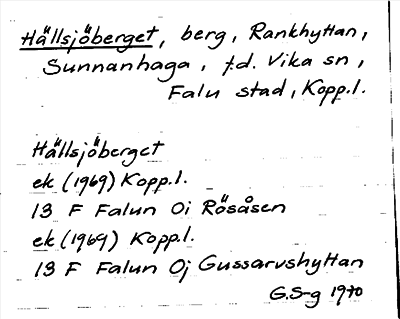 Hällsjöberget, berg, Rankhyttan,
Sunnanhaga, f.d. Vika sn,
Falu stad, Kopp.l.
Hällsjöberget
ek (1969) Kopp.l.
13 F Falun 0i Rösåsen
ek (1969) Kopp.l.
13 F Falun 0j Gussarvshyttan
G.S-g 1970